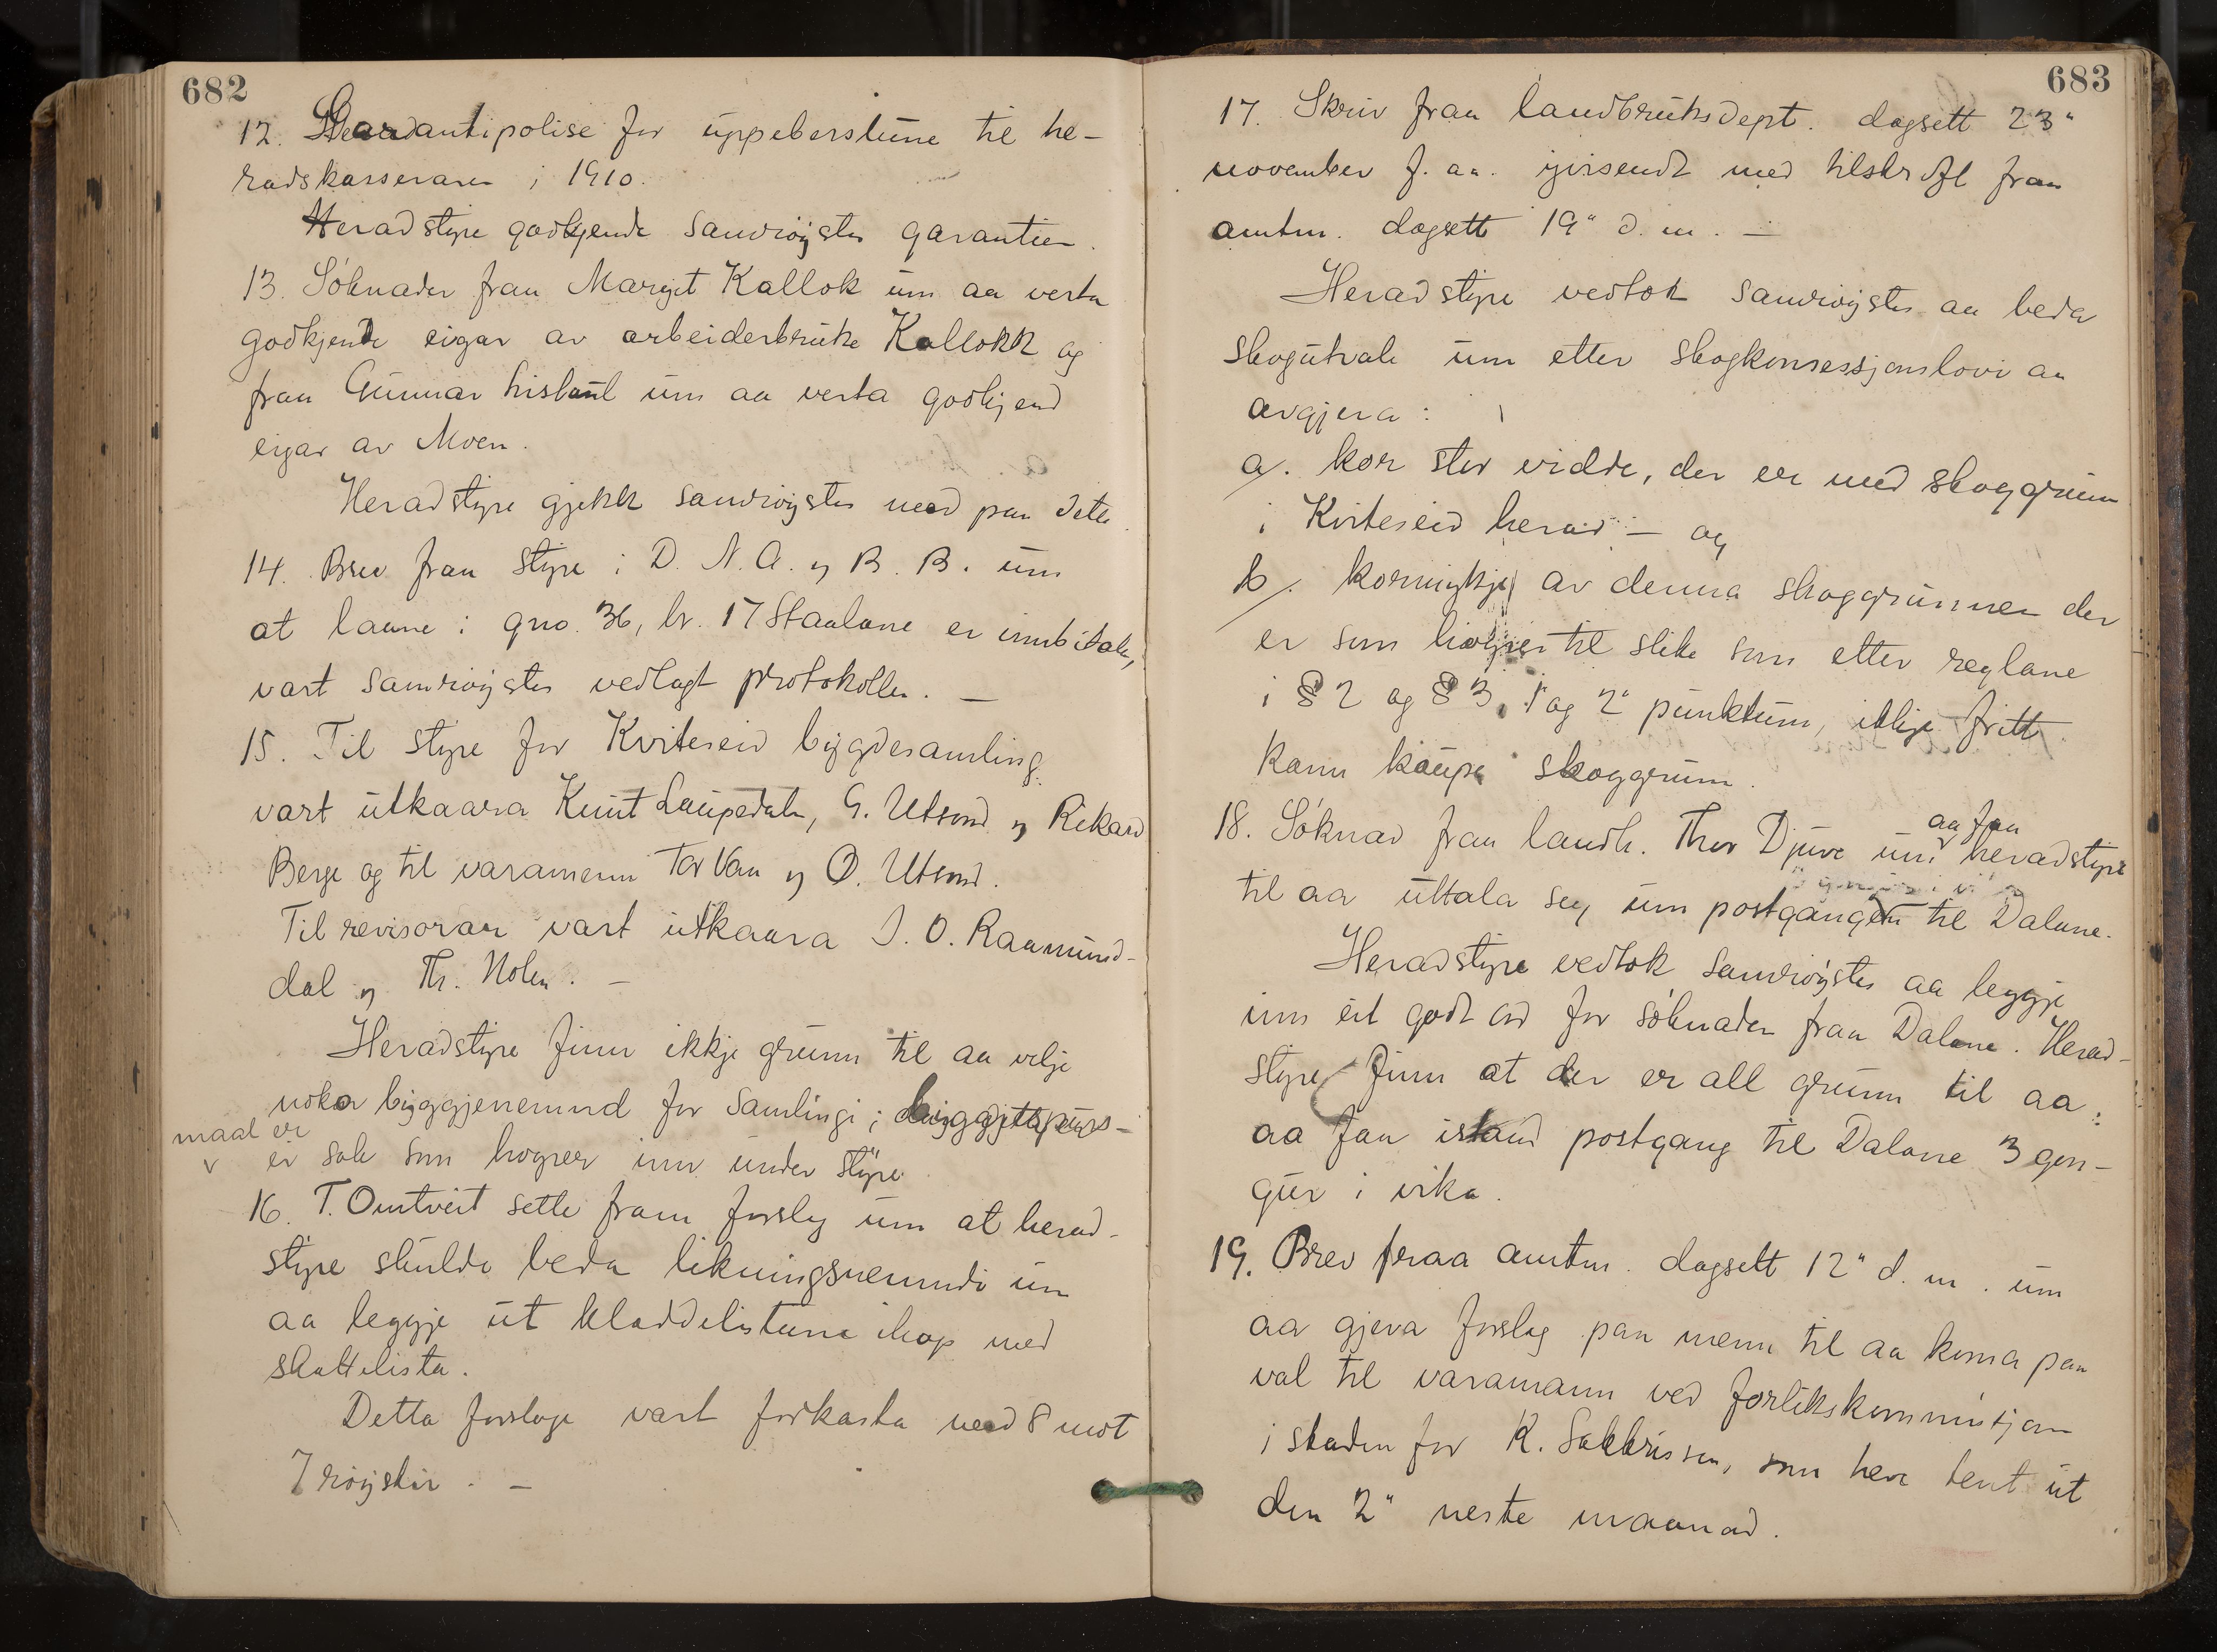 682
12. Garantipolise for uppeberstune til he-
radskasseraren i 1910.
Heradstyre godkjende samrøystes garantien.
13. Søknader fraa Margit Kallok um aa verta
godkjende eigar av arbeiderbruke Kallokk og
fraa Gunnar um aa verta godkjend
eigar av Moen.
Heradstyre gjekk samrøystes med paa dette.
14. Brev fraa styre i D. N. A. og B. B. um
at laane i gno. 36, br. 17 Staalane er innbitalt,
vart samrøystes vedlagt protokollen. —
15. Til styre for Kviteseid bygdesamling
vart utkaara Knut Laupedalen, G. Utsond og Rikard
Berge og til varamenn Tor Vaa og O. Utsond.
Til revisorar vart utkaara J. O. Raamund-
dal og Th. Nolen. —
Heradstyre finn ikkje grunn til aa velje
nokor byggjenemnd for samlingi; byggjespurs-
maal er
ei sak som høyrer inn under styre.
16. T. Omtveit sette fram forslag um at herad-
styre skulde beda likningsnemndi um
aa leggje ut kladdelistune ihop med
skattelista.
Detta forslage vart forkasta med 8 mot
7 røyster. —
683
17. Skriv fraa landbruksdept. dagsett 23"
november f. aa. yvisendt med tilskrift fraa
amtm. dagsett 19" d. m. —
Heradstyre vedtok samrøystes aa beda
skogutvale um etter skogkonsessjonslovi aa
avgjera:
a/. kor stor vidde, der er med skoggrunn
i Kviteseid herad — og
b/. kormykje av denna skoggrunnen der
er som høyrer til slike som etter reglane
i § 2 og § 3, 1" og 2" punktum, ikkje fritt
kann kaupa skoggrunn.
18. Søknad fraa landh. Thor Djuve um aa faa heradstyre
til aa uttala seg um postgangen til Dalane.
Heradstyre vedtok samrøystes aa leggje
inn eit godt ord for søknaden fraa Dalane. Herad-
styre finn at der er all grunn til aa:
aa faa istand postgang til Dalane 3 gon-
gur i vika.
19. Brev fraa amtm. dagsett 12" d. m. um
aa gjeva forslag paa menn til aa koma paa
val til varamann ved forlikskommisjon
i staden for K. Sakkrissen, som heve tent ut
den 2" neste maanad.